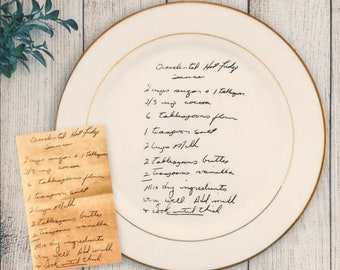 Occidental Hot Fudge
Sauce
2 cups sugar + 1 tablespn
2/3 cup cocoa
6 tablespoons flour
1 teaspoon salt
2 cups Milk
2 tablespoons butter
2 teaspoons vanilla
Mix dry ingredients
very well Add milk
& Cook until thick
Occidental Hot Fudge
Sauce
2 cups sugar + 1 tablespn
2/3 cup cocoa
6 tablespoons flour
1 teaspoon salt
2 cups Milk
2 tablespoons butter
2 teaspoons vanilla
Mix dry ingredients
very well Add milk
& Cook until thick